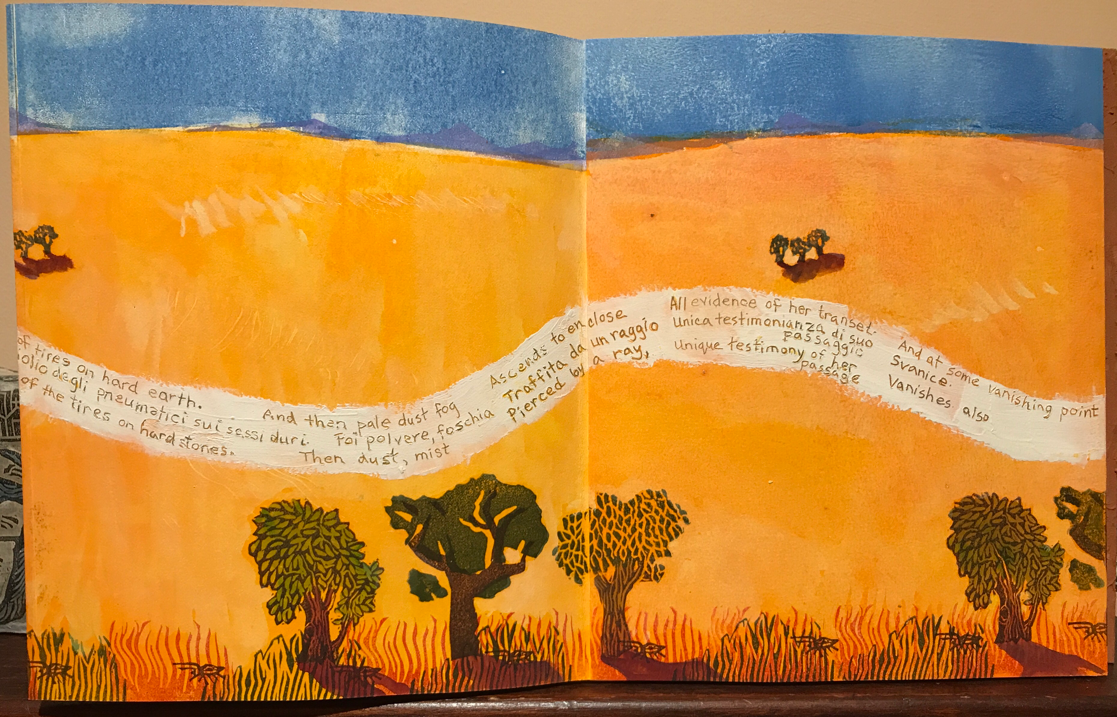 of tires on hard earth.
olio degli pneumatici sui sassi duri.
of the tires on hard stones.
And then pale dust fog
Foi polvere, foschia
Then dust, mist
Ascends to enclose
Traffita da un raggio
Pierced by a ray,
All evidence of her transet.
Unica testimonianza di suo
passaggio
Unique testimony of her
passage
And at some vanishing point
Svanice.
Vanishes also